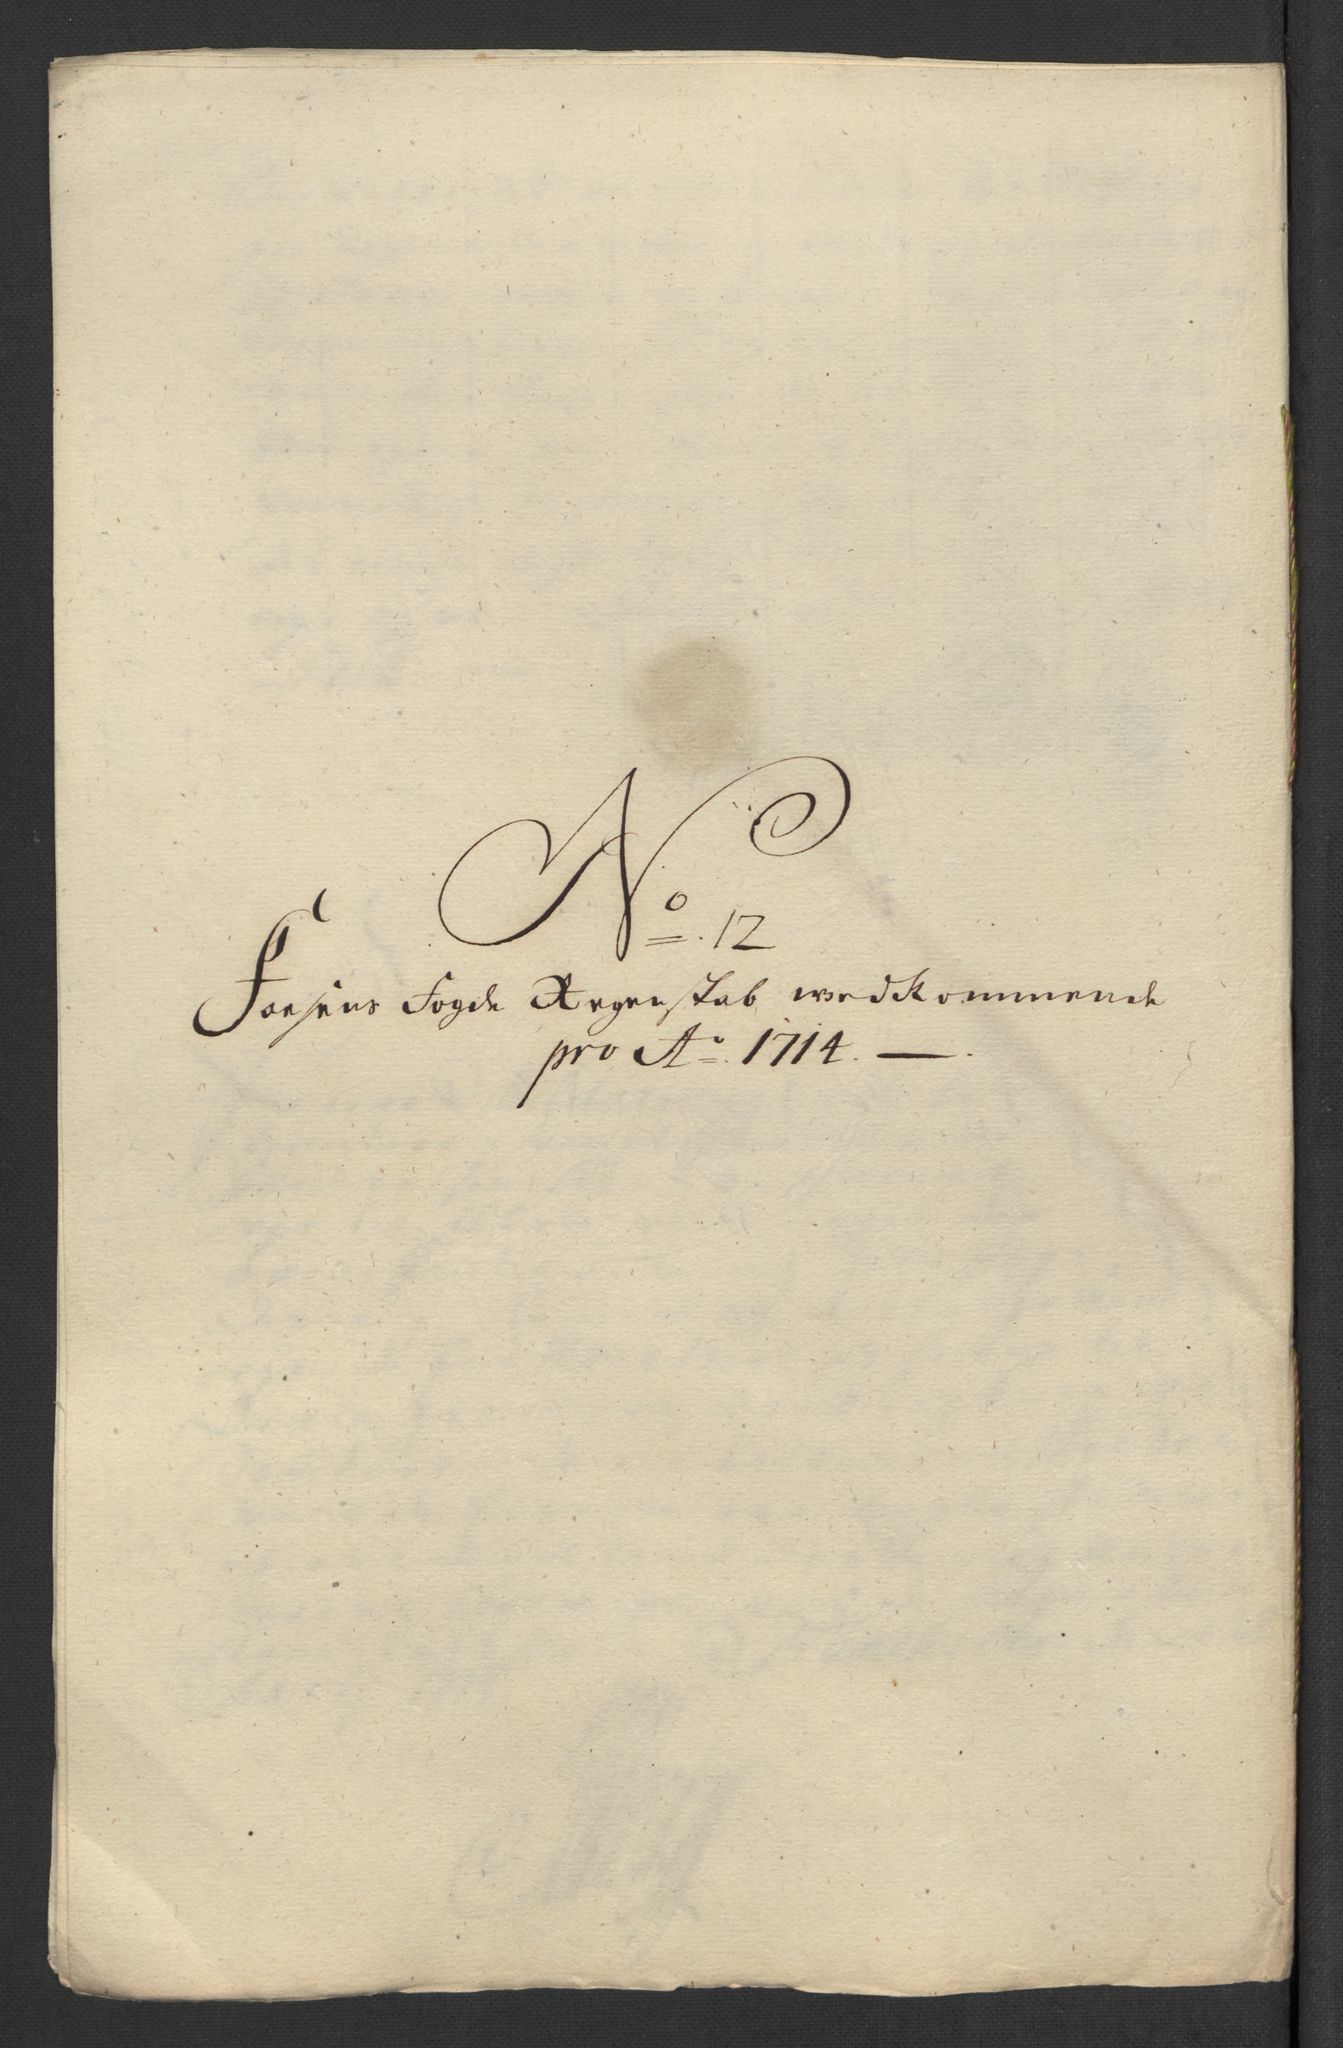 No. 12
Fosens Fogde Regenskab wedkommende
pro Ao. 1714. —